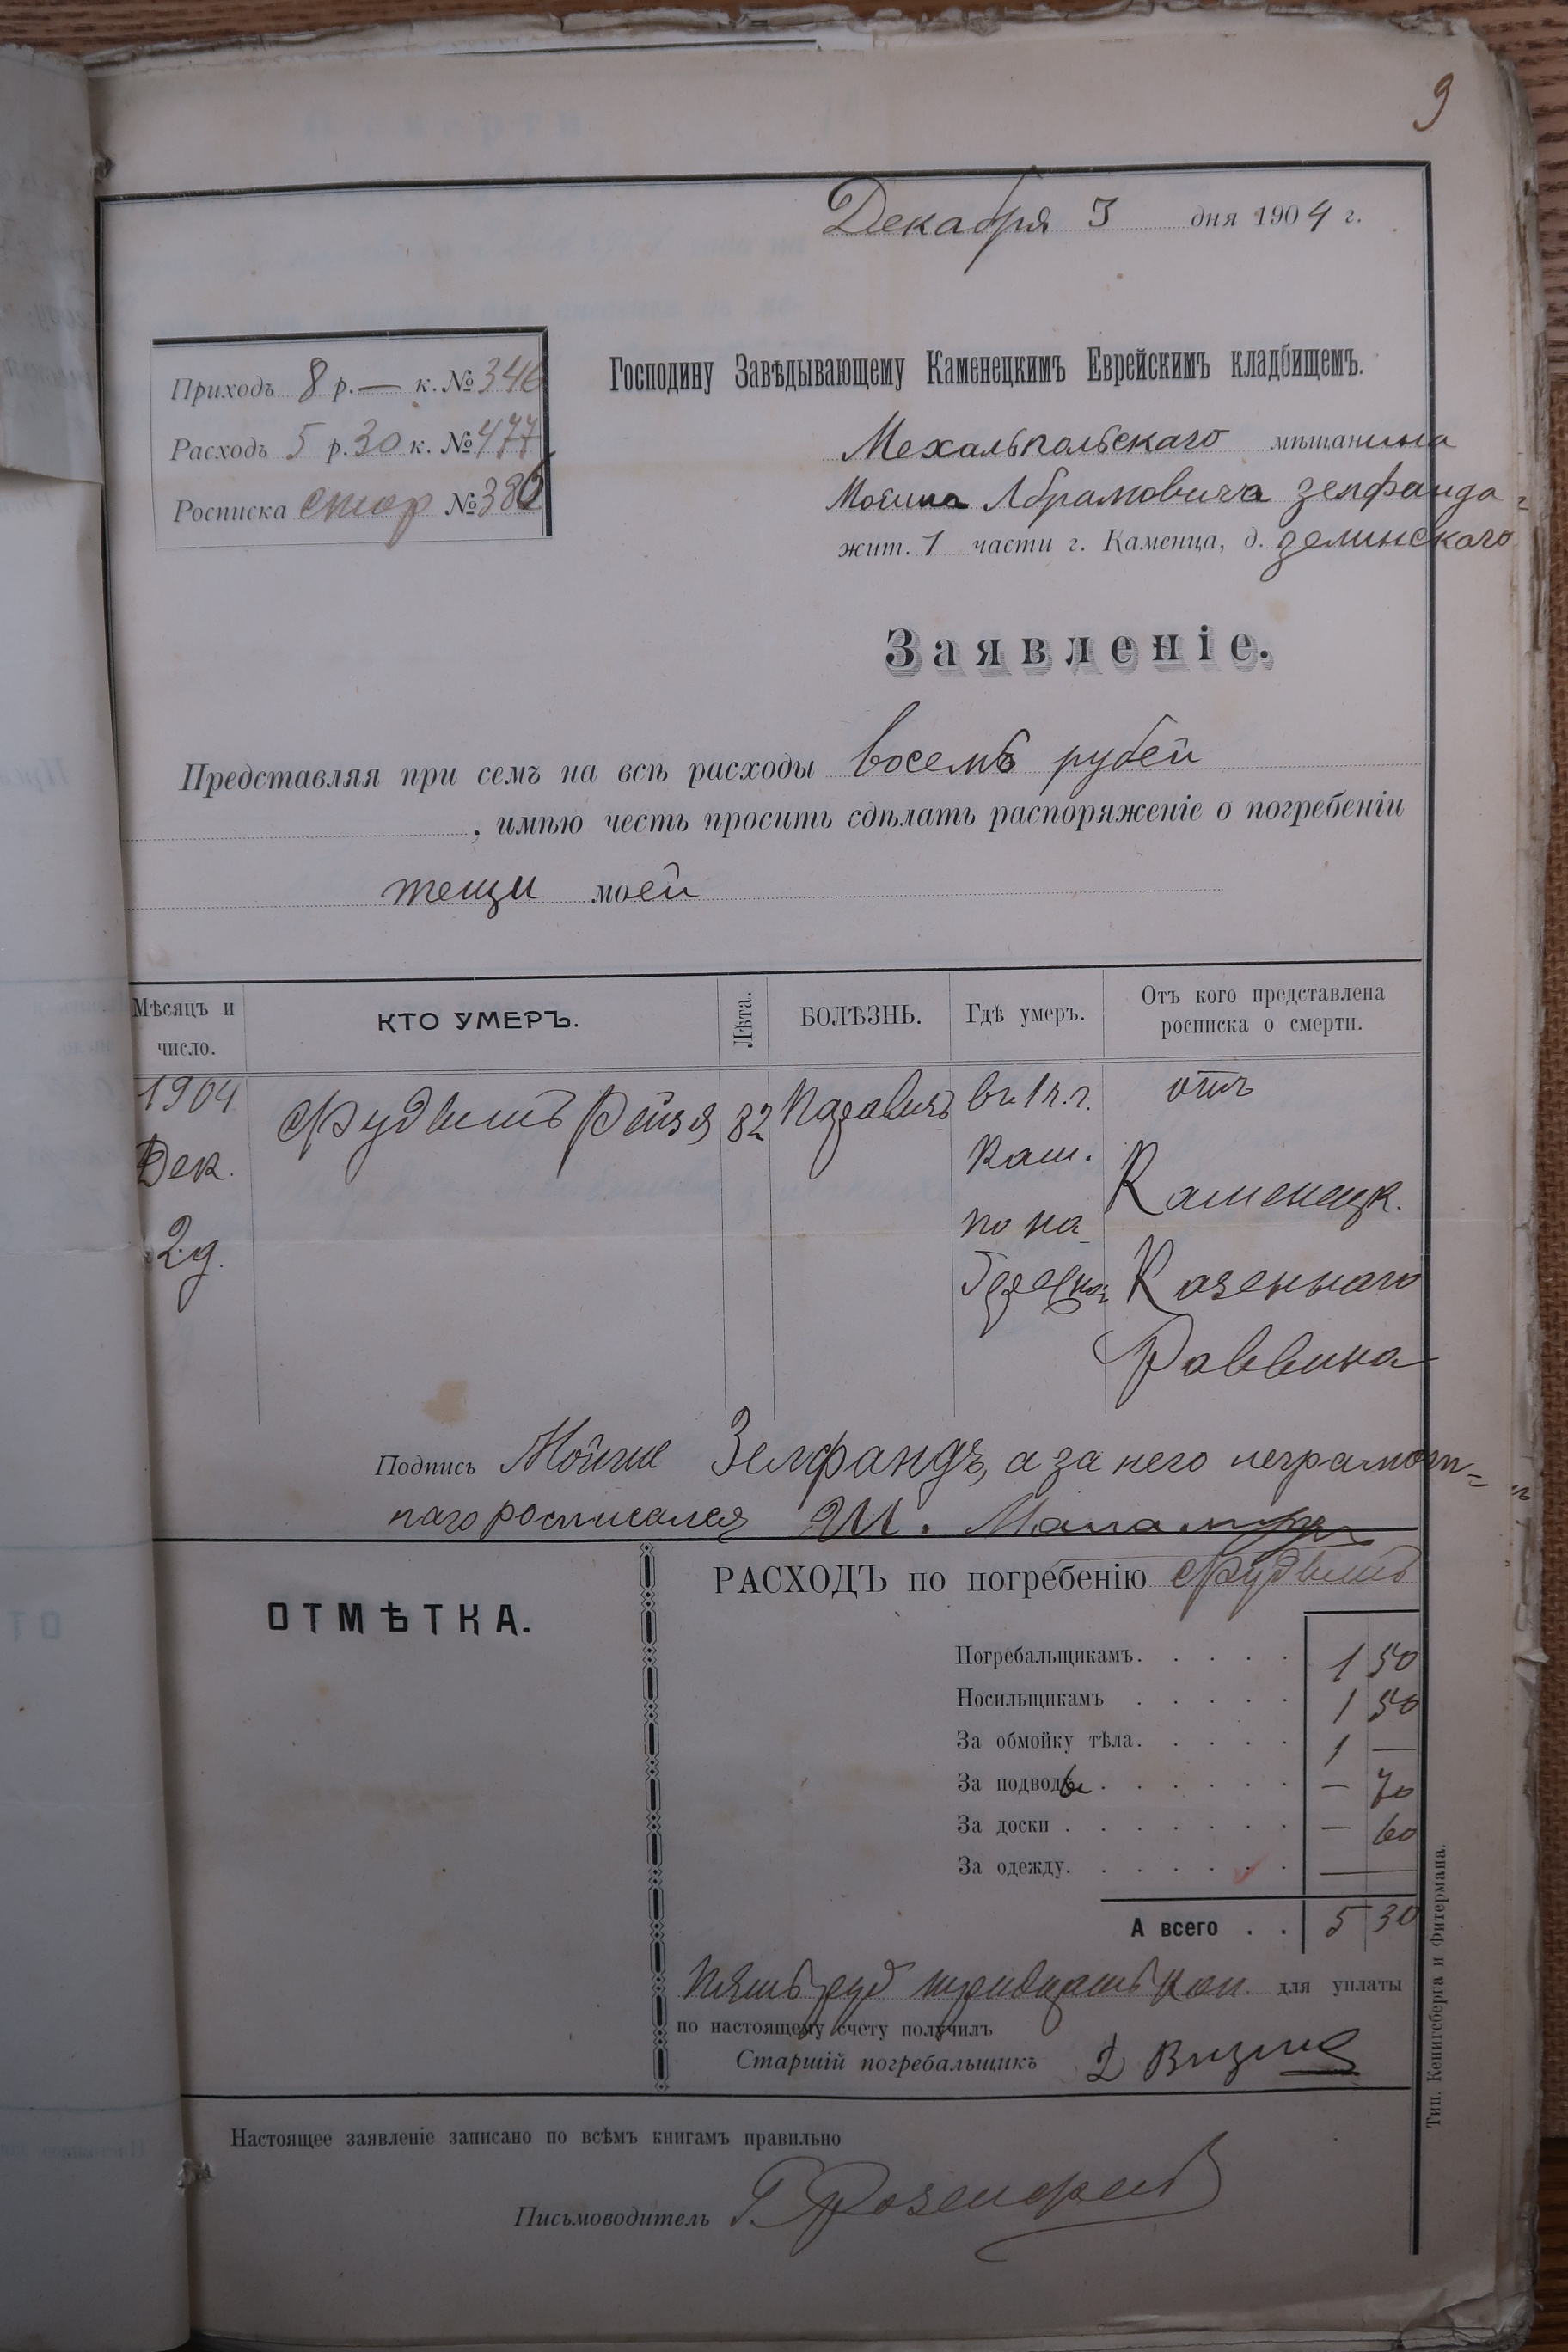 9
Декабря 3 дня 1904 г.
Приходъ 8 р. — к. № 346
Расходъ 5 р. 30 к. № 477
Росписка стор № 386
Господину Завѣдывающему Каменецкимъ Еврейскимъ кладбищемъ.
Мехальпольскаго мѣщанина
Мойша Абрамовича Зелфанда
жит. 1 части г. Каменца, д. Зелинскаго
Заявленіе.
Представляя при семъ на всѣ расходы восемь рубей
, имѣю честь просить сдѣлать распоряженіе о погребеніи
тещи моей
Мѣсяцъ и число.
КТО УМЕРЪ.
Лѣта.
БОЛѢЗНЬ.
Гдѣ умеръ.
Отъ кого представлена росписка о смерти.
1904
Дек.
2 д.
Рейзя
82
въ 1 ч. г.
Кам.
по на
отъ
Каменецк.
Казеннаго
Раввина
Подпись Мойше Зелфандъ, а за него неграмот-
наго росписался
ОТМѢТКА.
РАСХОДЪ по погребенію
Погребальщикамъ. 1 50
Носильщикамъ 1 50
За обмойку тѣла. 1 —
За подводы — 70
За доски — 60
За одежду. —
А всего 5 30
Пять руб тридцать коп. для уплаты
по настоящему счету получилъ
Старшій погребальщикъ
Настоящее заявленіе записано по всѣмъ книгамъ правильно
Письмоводитель
Тип. Кенигсберга и Фитермана.